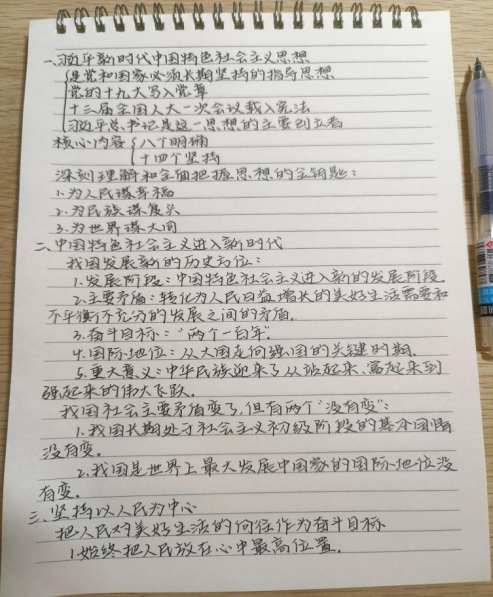 一、习近平新时代中国特色社会主义思想
是党和国家必须长期坚持的指导思想
党的十九大写入党章
十三届全国人大一次会议载入宪法
习近平总书记是这一思想的主要创立者
核心内容{八个明确
十四个坚持
深刻理解和全面把握思想的金钥匙：
1.为人民谋幸福
2.为民族谋复兴
3.为世界谋大同
二、中国特色社会主义进入新时代
我国发展新的历史方位：
1.发展阶段：中国特色社会主义进入新的发展阶段.
2.主要矛盾：转化为人民日益增长的美好生活需要和
不平衡不充分的发展之间的矛盾.
3.奋斗目标：“两个一百年”.
4.国际地位：从大国走向强国的关键时期.
5.重大意义：中华民族迎来了从站起来、富起来到
强起来的伟大飞跃.
我国社会主要矛盾变了,但有两个“没有变”：
1.我国长期处于社会主义初级阶段的基本国情
没有变.
2.我国是世界上最大发展中国家的国际地位没
有变.
三、坚持以人民为中心
把人民对美好生活的向往作为奋斗目标
1.始终把人民放在心中最高位置.